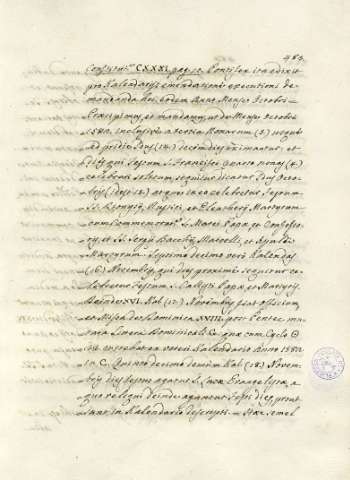 484.
CXXXI. pag. Pontifex ita edixit
pro Kalendarij emendationis executioni de-
mandanda hoc eodem Anno Mense Octobri =
Praecipimus, et mandamus, ut de Mense Octobri
1582. inclusive a tertia Nonarum (5.) usque
ad pridie Idus (14.) decem dies eximantur, et
dies, qui festum S. Francisci quarto nonas (4.)
celebrari solitum sequitur dicatur Idus Octo-
bris (dies 15.) atque in eo celebretur festum
SS. Dionysij, Rustici, et Eleutherij Martyrum
cum Commemorat. S. Marci Papae, et Confesso-
ris, et SS. Sergij, Bacchi, Marcelli, et Apuleij
Martyrum. Septimo decimo vero Kalendas
(16.) Novembris, qui dies proxime sequitur ce-
lebretur festum S. Callisti Papae, et Martyris
deinde XVI. Kal. (17.) Novembris fiat Officium,
et Missa de Dominica XVIII. post Pentec. mu-
tata litera Dominicali G. quae cum Cyclo
in veteri Kalendario Anno 1582.
in C. Quinto decimo demum Kal. (18.) Novem-
bris dies festus agatur S. Lucae Evangelistae, a
quo reliqui deinde agantur festi dies, prout
sunt in Kalendario descripti. =